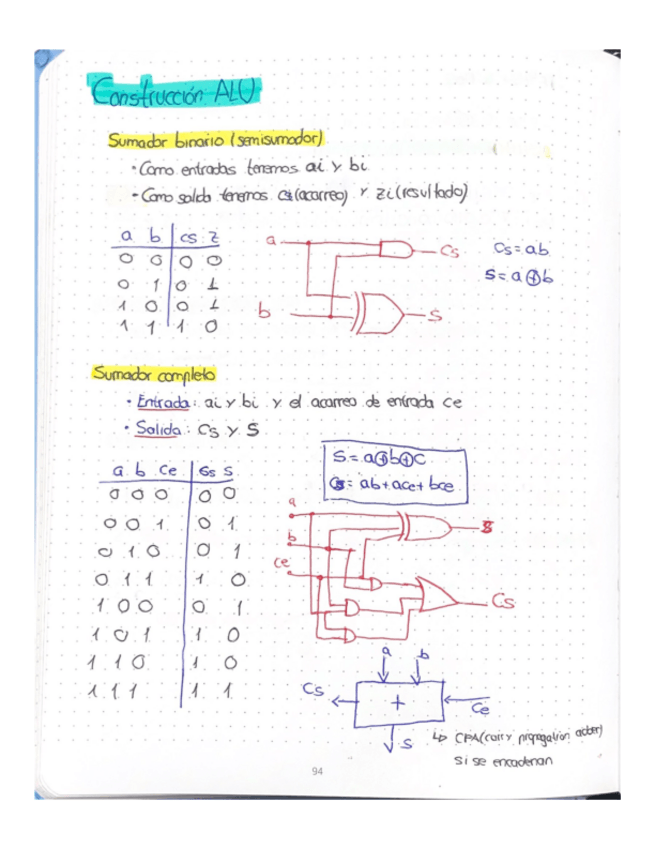 Construcción ALU
Sumador binario (semisumador)
· Como entradas tenemos ai y bi
· Como salida tenemos cs(acarreo) y zi(resultado)
a b cs z
0 0 0 0
0 1 0 1
1 0 0 1
1 1 1 0
a
Cs
b
S
Cs = ab
S = a⊕b
Sumador completo
· Entrada: ai y bi y el acarreo de entrada ce
· Salida: Cs y S
a b ce cs s
0 0 0 0 0
0 0 1 0 1
0 1 0 0 1
0 1 1 1 0
1 0 0 0 1
1 0 1 1 0
1 1 0 1 0
1 1 1 1 1
S = a⊕b⊕c
Cs = ab + ace + bce
a
S
b
ce
Cs
a b
Cs
+
Ce
S
↳ CPA(carry propagation adder)
si se encadenan
94